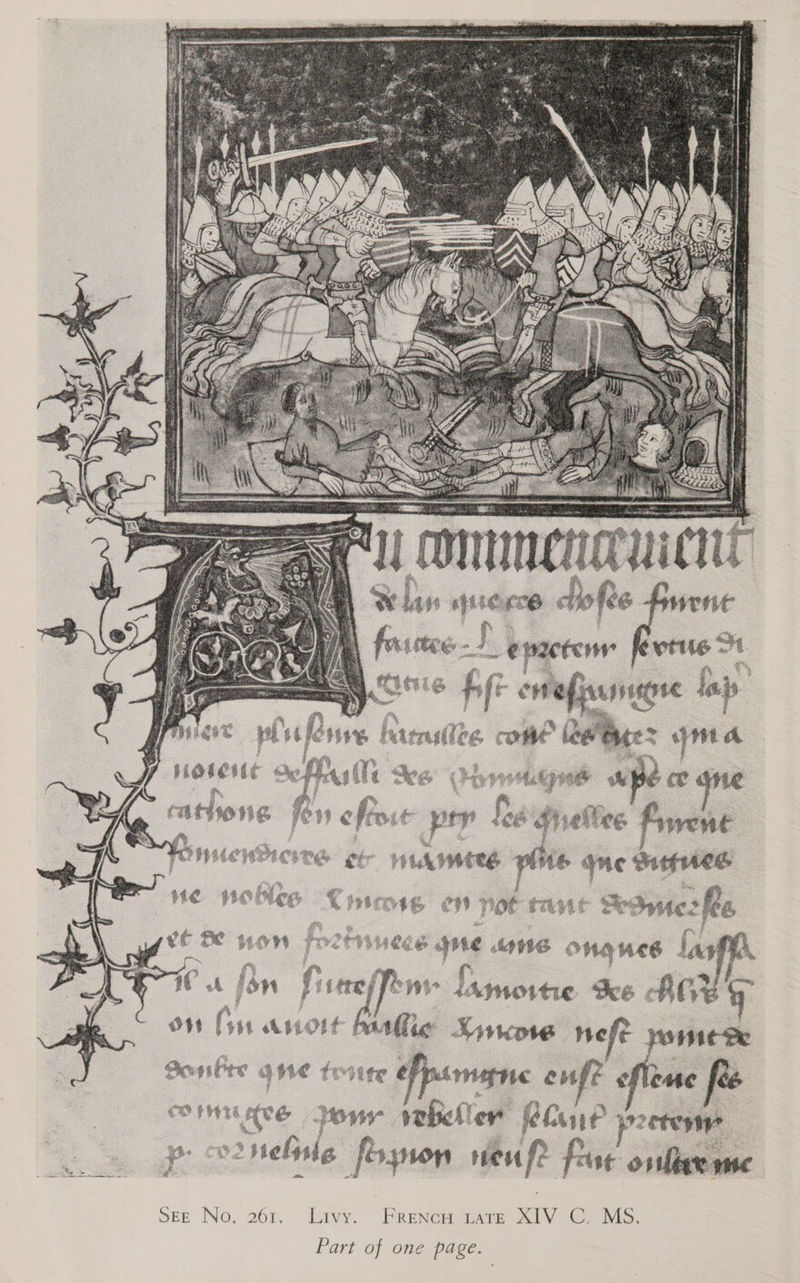 Au commencement
de lan que ces choses furent
faictes - L epreteur sextus di
gitus fist en espaingne lap
muere pluseurs batailles contre les citez qui a
uoient deffailli des Rommains apres ce que
cathons sen estoit party les quelles furent
et maintes plus que dignes
ne nobles en pot tant
et de non fortunees que ains onques laissa
il a son successeur lamoitie des
on lui auoit baillie Aincois nest point de
doubte que toute espaingne eust esleue ses
pour rebeller se lautre preteur
p. cornelius scipion neust fait oultre me
SEE No. 261. LIVY. FRENCH LATE XIV C. MS.
Part of one page.